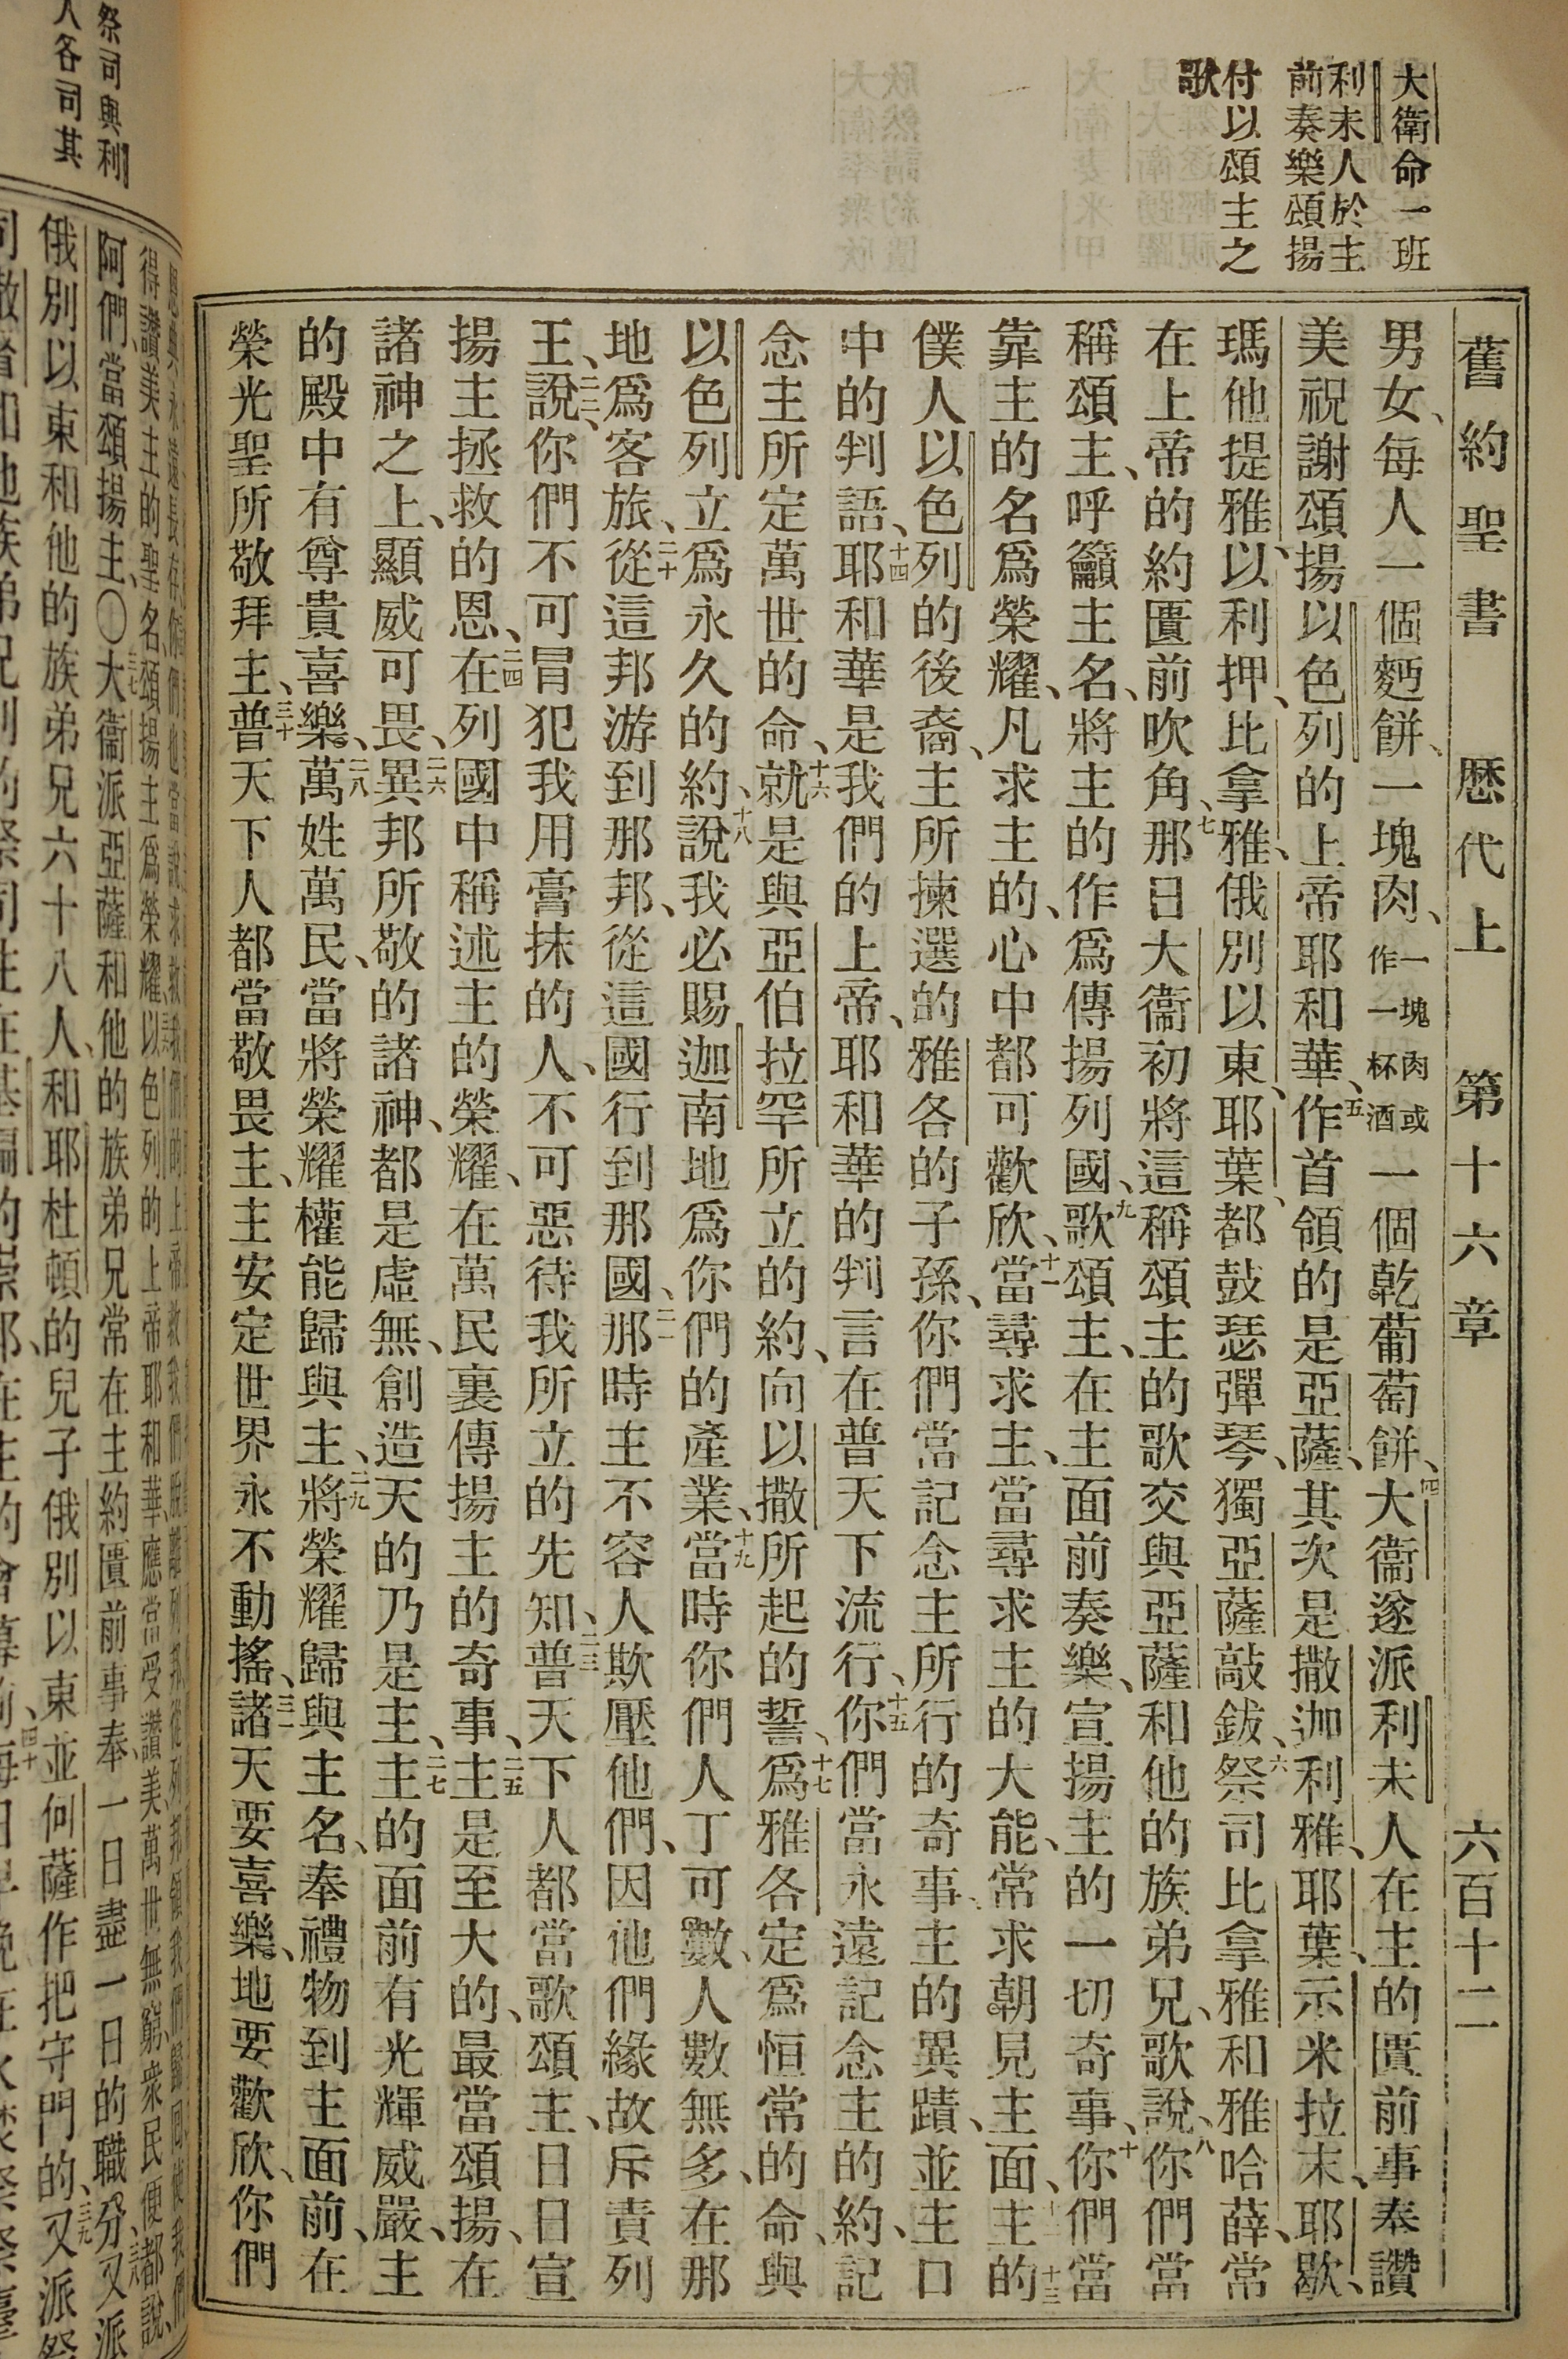 大衛命一班
利未人於主
前奏樂頌揚
付以頌主之
歌
舊約聖書 歷代上 第十六章 六百十二
男女、每人一個麪餅、一塊肉、一塊肉或作一杯酒一個乾葡萄餅、四大衞遂派利未人在主的匱前事奉讚
美祝謝頌揚以色列的上帝耶和華、五作首領的是亞薩、其次是撒迦利雅、耶葉、示米拉末、耶歇、
瑪他提雅、以利押、比拿雅、俄別以東、耶葉、都鼓瑟彈琴、獨亞薩敲鈸、六祭司比拿雅和雅哈薛、常
在上帝的約匱前吹角、七那日大衞初將這稱頌主的歌交與亞薩和他的族弟兄、歌說、八你們當
稱頌主、呼籲主名、將主的作爲傳揚列國、九歌頌主、在主面前奏樂、宣揚主的一切奇事、十你們當
靠主的名爲榮耀、凡求主的、心中都可歡欣、十一當尋求主、當尋求主的大能、常求朝見主面、十二主的十三
僕人以色列的後裔、主所揀選的雅各的子孫、你們當記念主所行的奇事、主的異蹟、並主口
中的判語、十四耶和華是我們的上帝、耶和華的判言在普天下流行、十五你們當永遠記念主的約、記
念主所定萬世的命、十六就是與亞伯拉罕所立的約、向以撒所起的誓、十七爲雅各定爲恒常的命、與
以色列立爲永久的約、十八說我必賜迦南地爲你們的產業、十九當時你們人丁可數、人數無多、在那
地爲客旅、二十從這邦游到那邦、從這國行到那國、二一那時主不容人欺壓他們、因他們緣故斥責列
王、二二說、你們不可冒犯我用膏抹的人、不可惡待我所立的先知、二三普天下人都當歌頌主、日日宣
揚主拯救的恩、二四在列國中稱述主的榮耀、在萬民裏傳揚主的奇事、二五主是至大的、最當頌揚、在
諸神之上、顯威可畏、二六異邦所敬的諸神、都是虛無、創造天的乃是主、二七主的面前有光輝威嚴、主
的殿中有尊貴喜樂、二八萬姓萬民、當將榮耀權能歸與主、二九將榮耀歸與主名、奉禮物到主面前、在
榮光聖所敬拜主、三十普天下人都當敬畏主、主安定世界永不動搖、三一諸天要喜樂、地要歡欣、你們
祭司與利
人各司其
得讚美主的聖名、頌揚主爲榮耀、以色列的上帝耶和華、應當受讚美萬世無窮、衆民便都說、
阿們、當頌揚主、〇三七大衞派亞薩和他的族弟兄常在主約匱前事奉、一日盡一日的職分、又派
俄別以東和他的族弟兄六十八人、和耶杜頓的兒子俄別以東並何薩作把守門的、三九又派祭